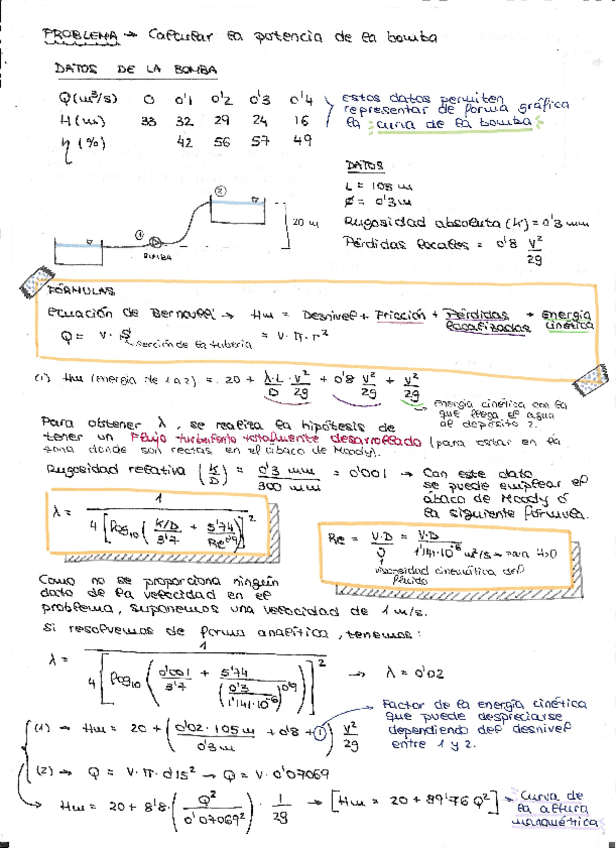 PROBLEMA → Calcular la potencia de la bomba
DATOS DE LA BOMBA
Q(m³/s) 0 0'1 0'2 0'3 0'4
H(m) 33 32 29 24 16
η (%) 42 56 57 49
estos datos permiten
representar de forma gráfica
la curva de la bomba
DATOS
L = 105 m
Ø = 0'3 m
Rugosidad absoluta (K) = 0'3 mm
Pérdidas locales = 0'8 V²/2g
①
②
20 m
BOMBA
FÓRMULAS
Ecuación de Bernoulli → Hm = Desnivel + Fricción + Pérdidas localizadas + energía cinética
Q = V · S = V · π · r²
sección de la tubería
(1) Hm (energía de 1 a 2) = 20 + λ·L/D · V²/2g + 0'8 V²/2g + V²/2g
energía cinética con la
que llega el agua
al depósito 2.
Para obtener λ, se realiza la hipótesis de
tener un Flujo turbulento totalmente desarrollado (para estar en la
zona donde son rectas en el ábaco de Moody).
Rugosidad relativa (K/D) = 0'3 mm/300 mm = 0'001 → Con este dato
se puede emplear el
ábaco de Moody ó
la siguiente fórmula.
λ = 1 / 4[log₁₀(K/D/3'7 + 5'74/Re^0'9)]²
Re = V·D/ν = V·D/1'141·10⁻⁶ m²/s → para H₂O
viscosidad cinemática del
fluido
Como no se proporciona ningún
dato de la velocidad en el
problema, suponemos una velocidad de 1 m/s.
Si resolvemos de forma analítica, tenemos:
λ = 1 / 4[log₁₀(0'001/3'7 + 5'74/(0'3/1'141·10⁻⁶)^0'9)]² → λ = 0'02
Factor de la energía cinética
que puede despreciarse
dependiendo del desnivel
entre 1 y 2.
(1) → Hm = 20 + (0'02·105 m/0'3 m + 0'8 + 1) V²/2g
(2) → Q = V·π·0'15² → Q = V·0'07069
Hm = 20 + 8'8·(Q²/0'07069²) · 1/2g → [Hm = 20 + 89'76 Q²] → Curva de
la altura
manométrica